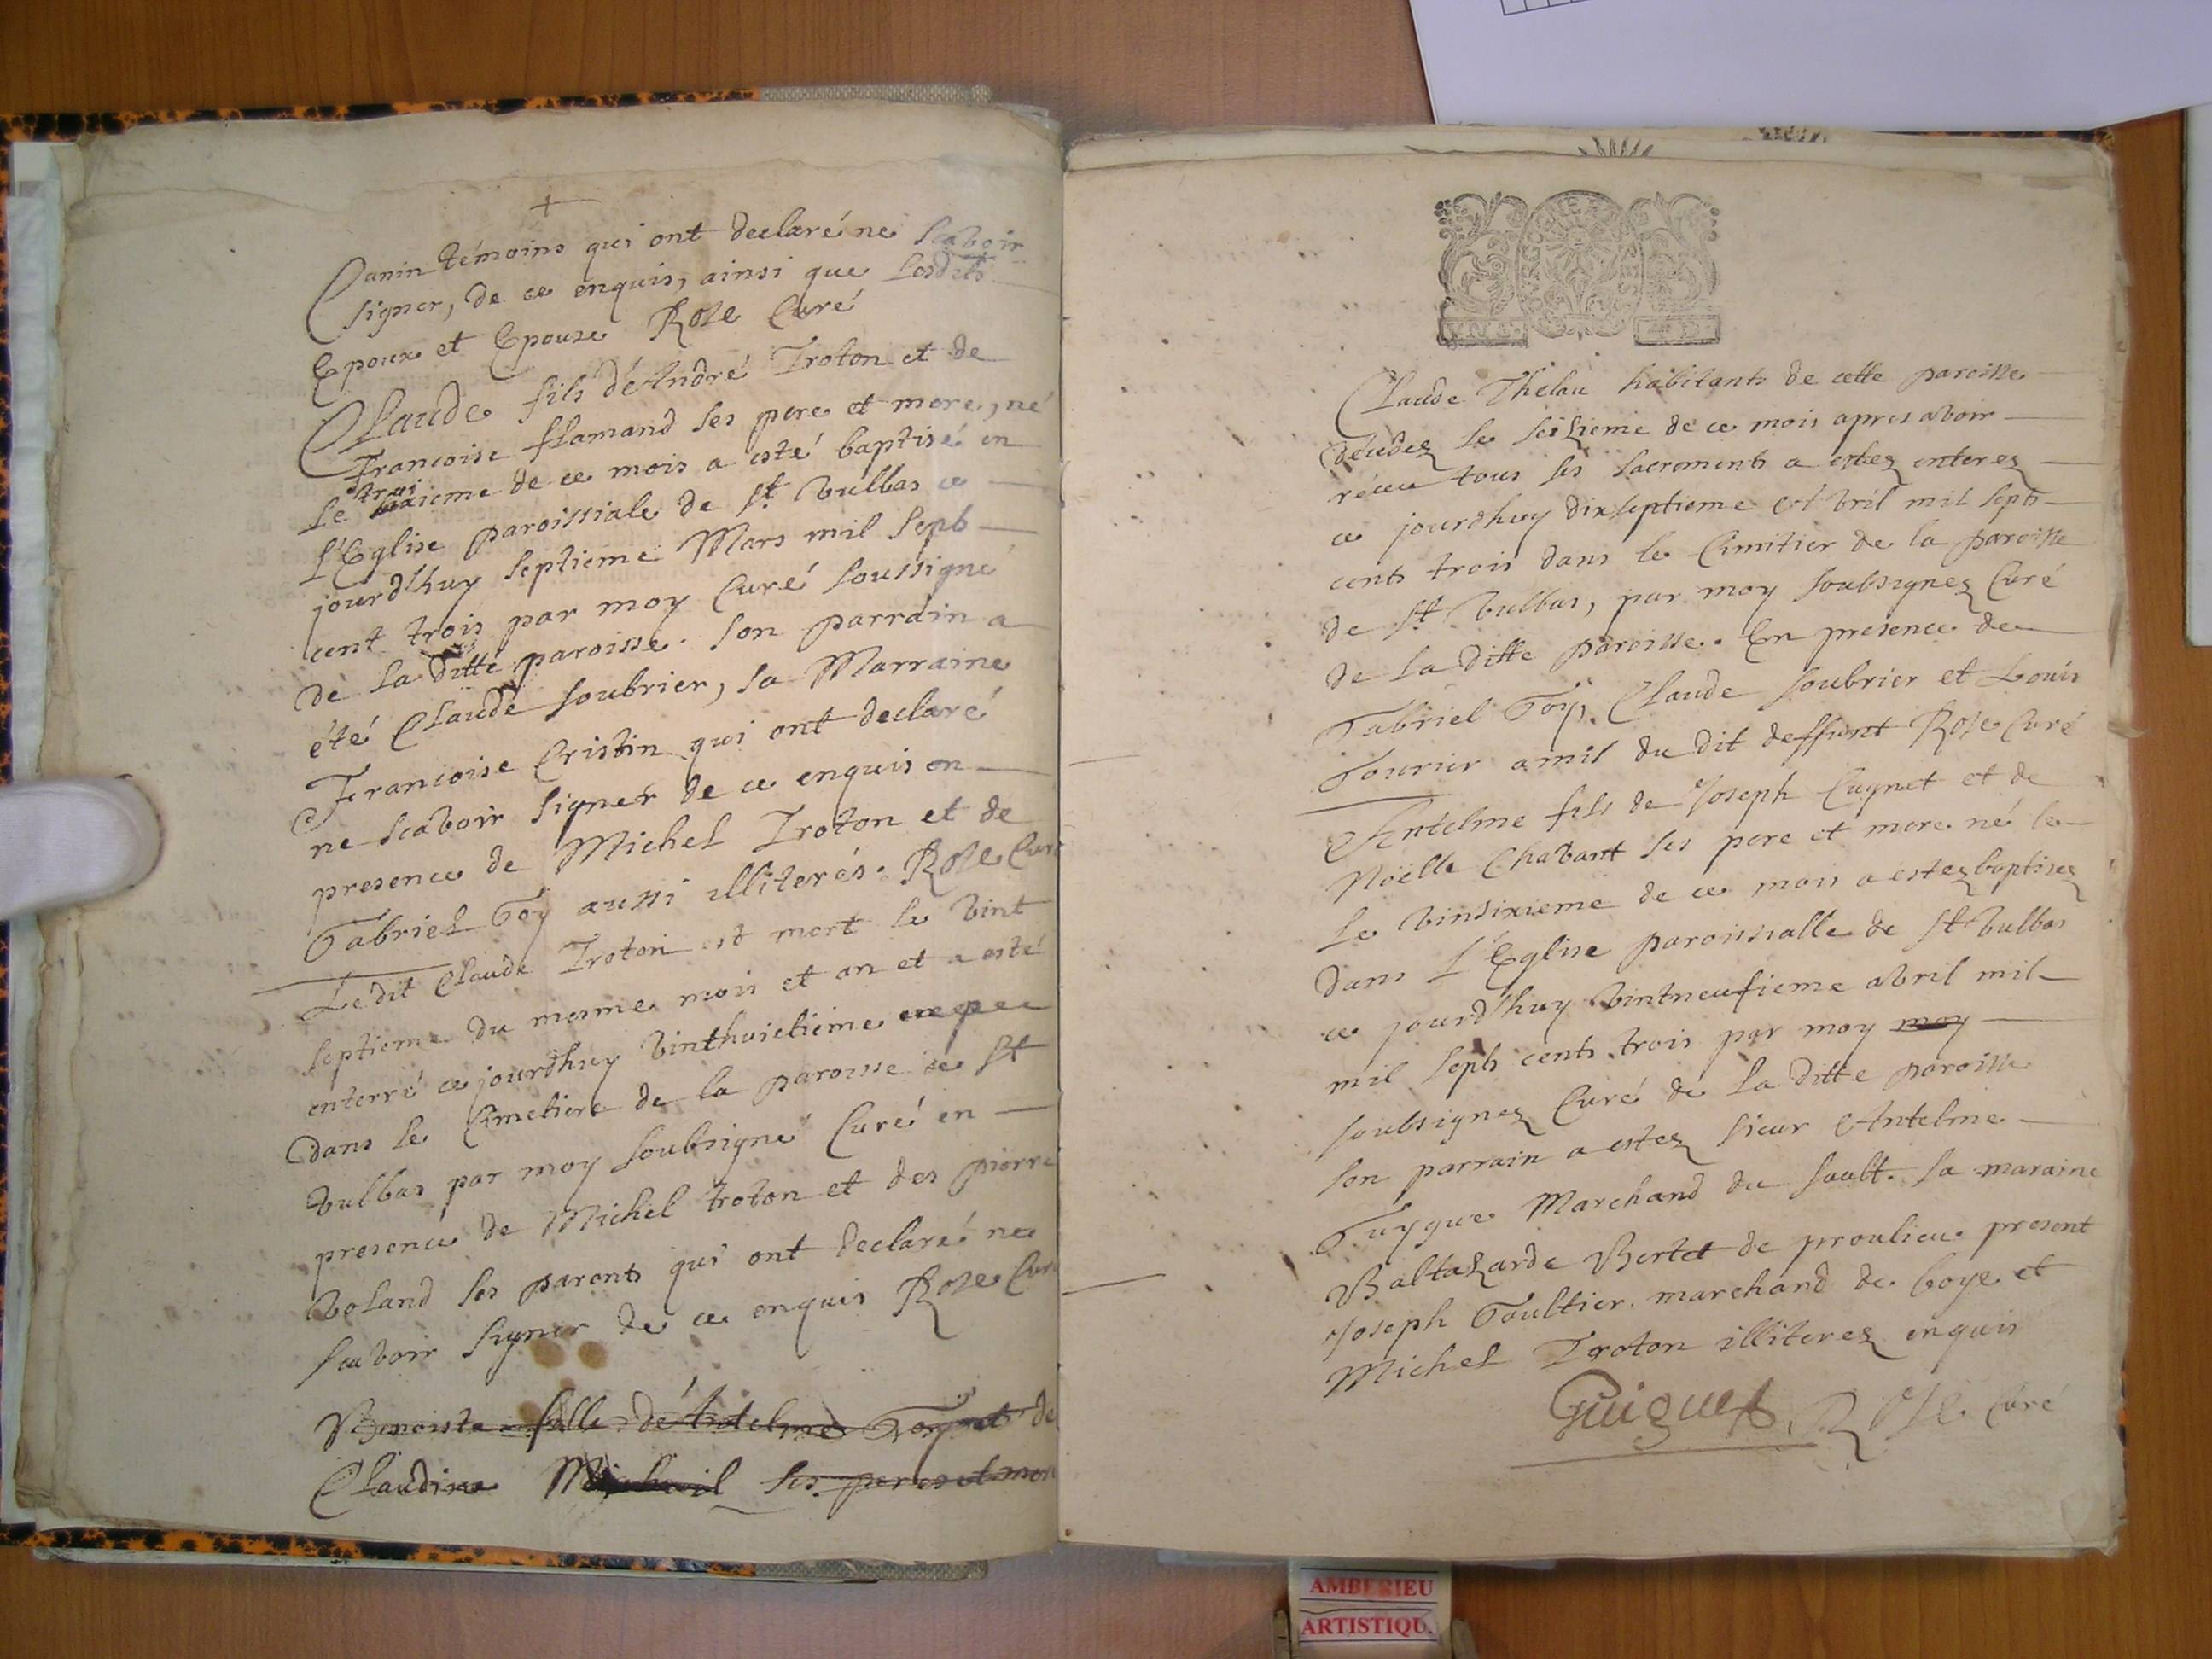 Canin témoins qui ont declaré ne scavoir
signer, de ce enquis, ainsi que lesdits
Epoux et Epouse Roze Curé
Claude fils d'André Troton et de
Francoise flamand ses pere et mere, né
le troisieme de ce mois a esté baptisé en
l'Eglise paroissiale de St Vulbas ce
jourd'huy septieme Mars mil sept
cent trois par moy Curé soussigné
de la ditte paroisse. Son parrain a
été Claude soubrier, sa Marraine
Francoise Cristin qui ont declaré
ne scavoir signer de ce enquis en
presence de Michel Troton et de
Gabriel Goy aussi illiterés. Roze Curé
Ledit Claude Troton est mort le vint
septieme du mesme mois et an et a esté
enterré ce jourdhuy vinthuictieme
dans le Cimetiere de la paroisse de St
Vulbas par moy soubsigné Curé en
presence de Michel troton et des pierre
Voland ses parents qui ont declaré ne
scavoir signer de ce enquis Roze Curé
Benoiste fille d'Antelme de
Claudine ses peres et mere
GNE
Claude Thelau habitants de cette paroisse
décédez le seizieme de ce mois apres avoir
réceu tous ses sacrements a estez enterez
ce jourdhuy dixseptieme Avril mil sept
cents trois dans le Cimitier de la paroisse
de St Vulbas, par moy soubsignez Curé
de la ditte paroisse. En presence de
Gabriel Goy, Claude soubrier et Louis
Fourier amis du dit deffunt Roze Curé
Antelme fils de Joseph Cuynet et de
Noëlle Chavant ses pere et mere né le
le vinsixieme de ce mois a estez baptisez
dans l'Eglise paroissialle de St Vulbas
ce jourd'huy vintneufieme avril mil
mil sept cents trois par moy moy
soubsignez Curé de la ditte paroisse
son parrain a estez sieur Antelme
Guygue Marchand du sault. sa maraine
Baltazarde Bertet de proulieu present
Joseph Gaultier marchand de loye et
Michel Troton illiterez enquis
Guigues Roze Curé
AMBERIEU
ARTISTIQU